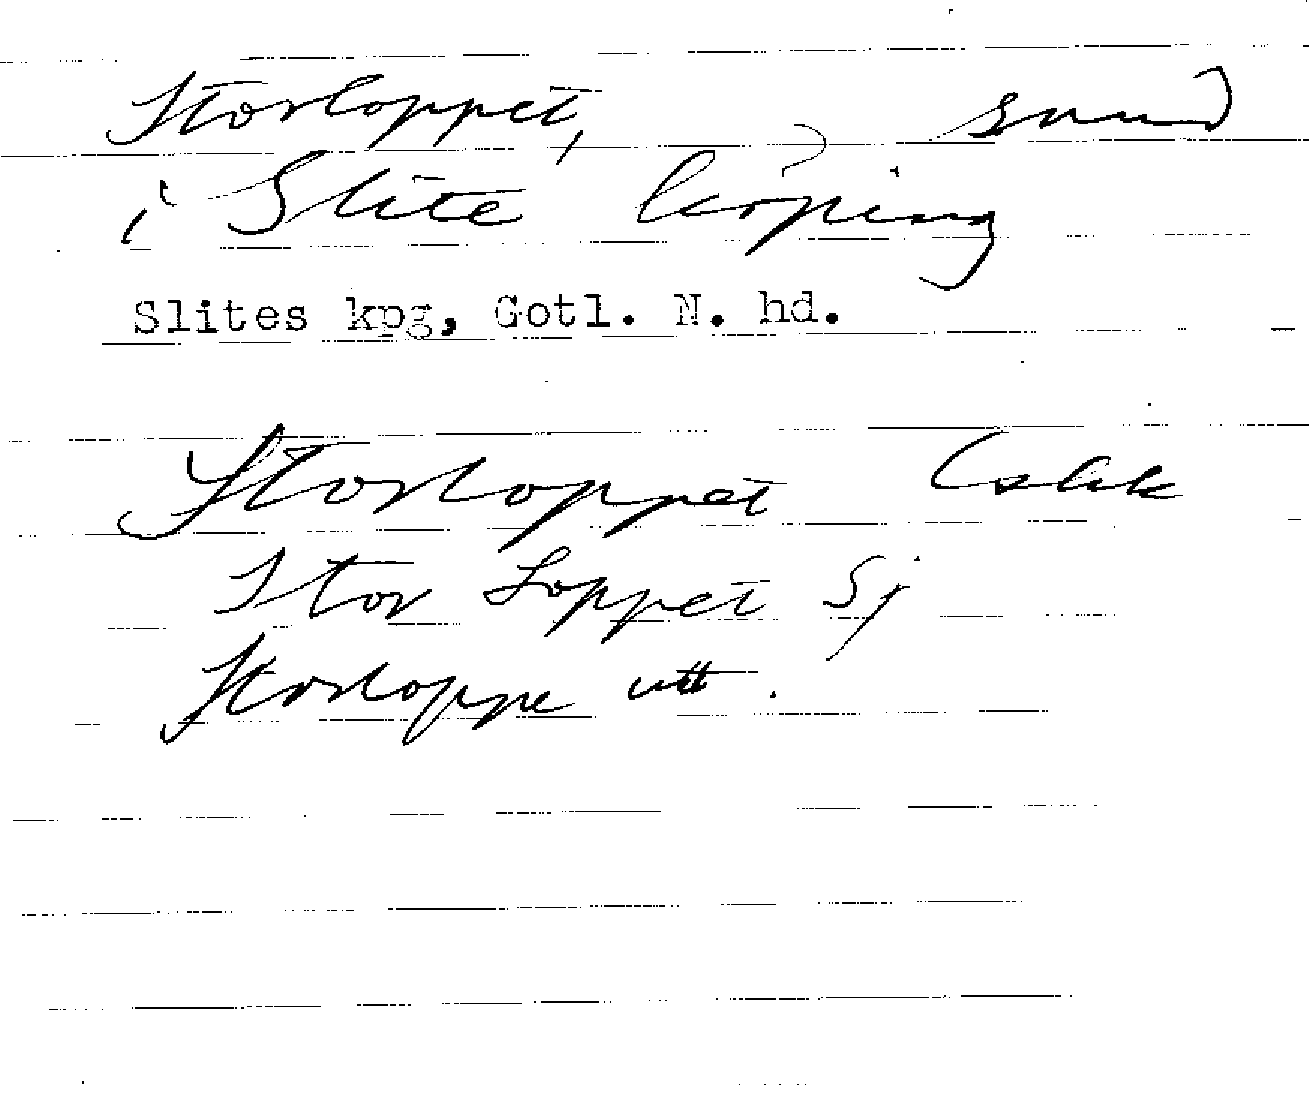 Storloppet, sund
i Slite köping
Slites kpg, Gotl. N. hd.
Storloppet
Stor Loppet Sj
Storloppe utt.